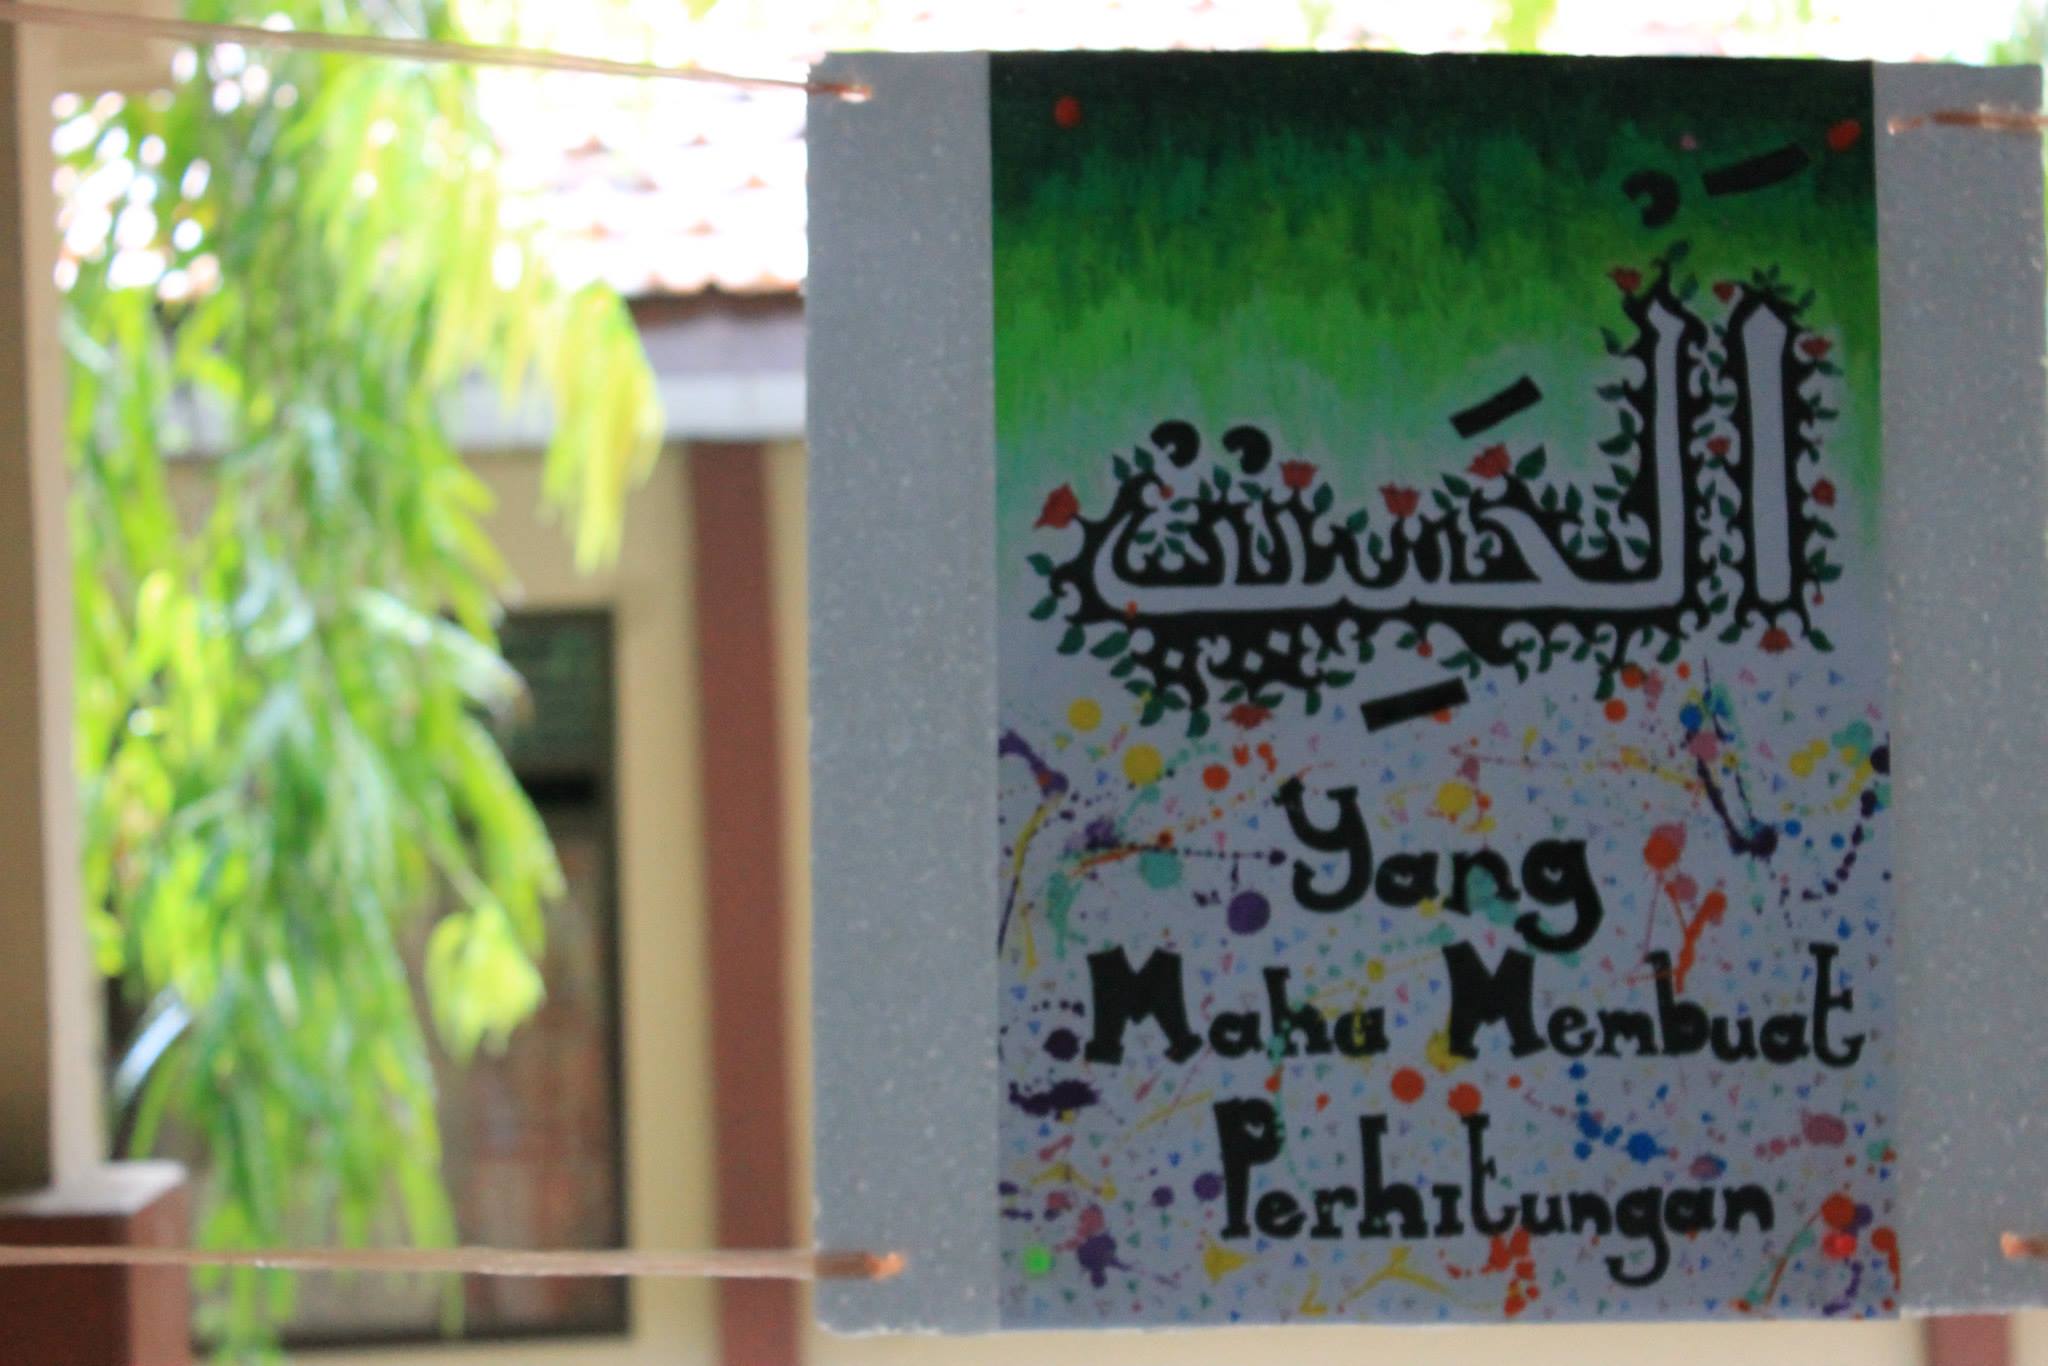 اَلْحَسِيْبُ
Yang
Maha Membuat
Perhitungan